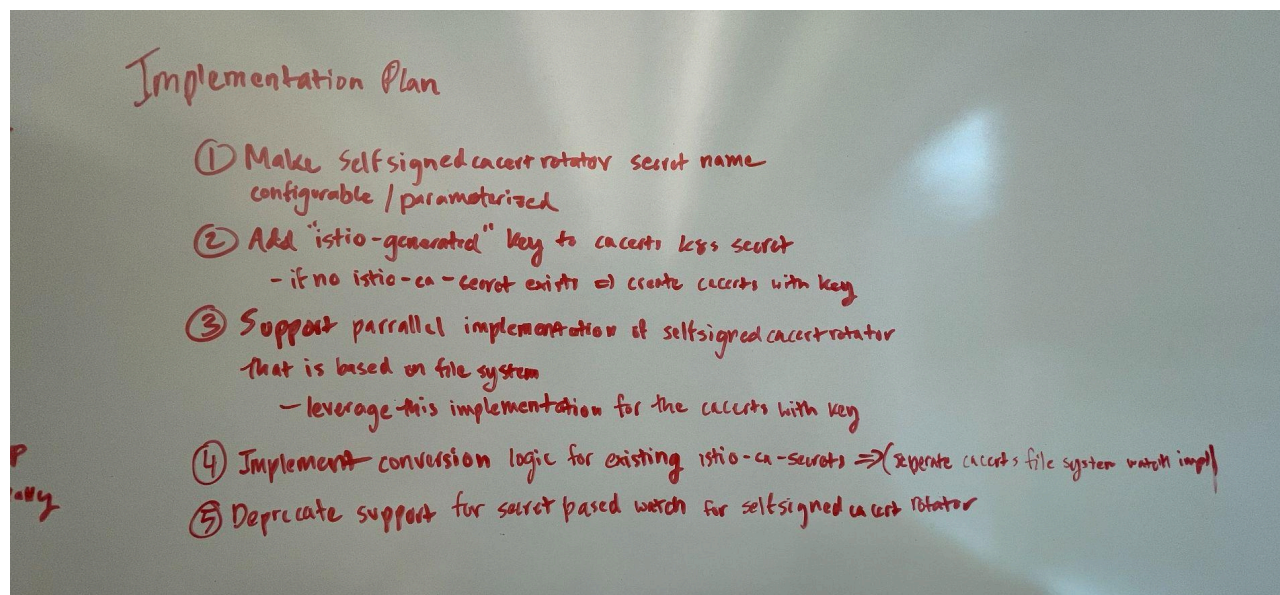 Implementation Plan
① Make selfsignedcacertrotator secret name
configurable / parameterized
② Add "istio-generated" key to cacerts k8s secret
- if no istio-ca-secret exists => create cacerts with key
③ Support parrallel implementation of selfsignedcacertrotator
that is based on file system
- leverage this implementation for the cacerts with key
④ Implement conversion logic for existing istio-ca-secrets => (seperate cacerts file system watch impl)
⑤ Deprecate support for secret based watch for selfsigned ca cert rotator